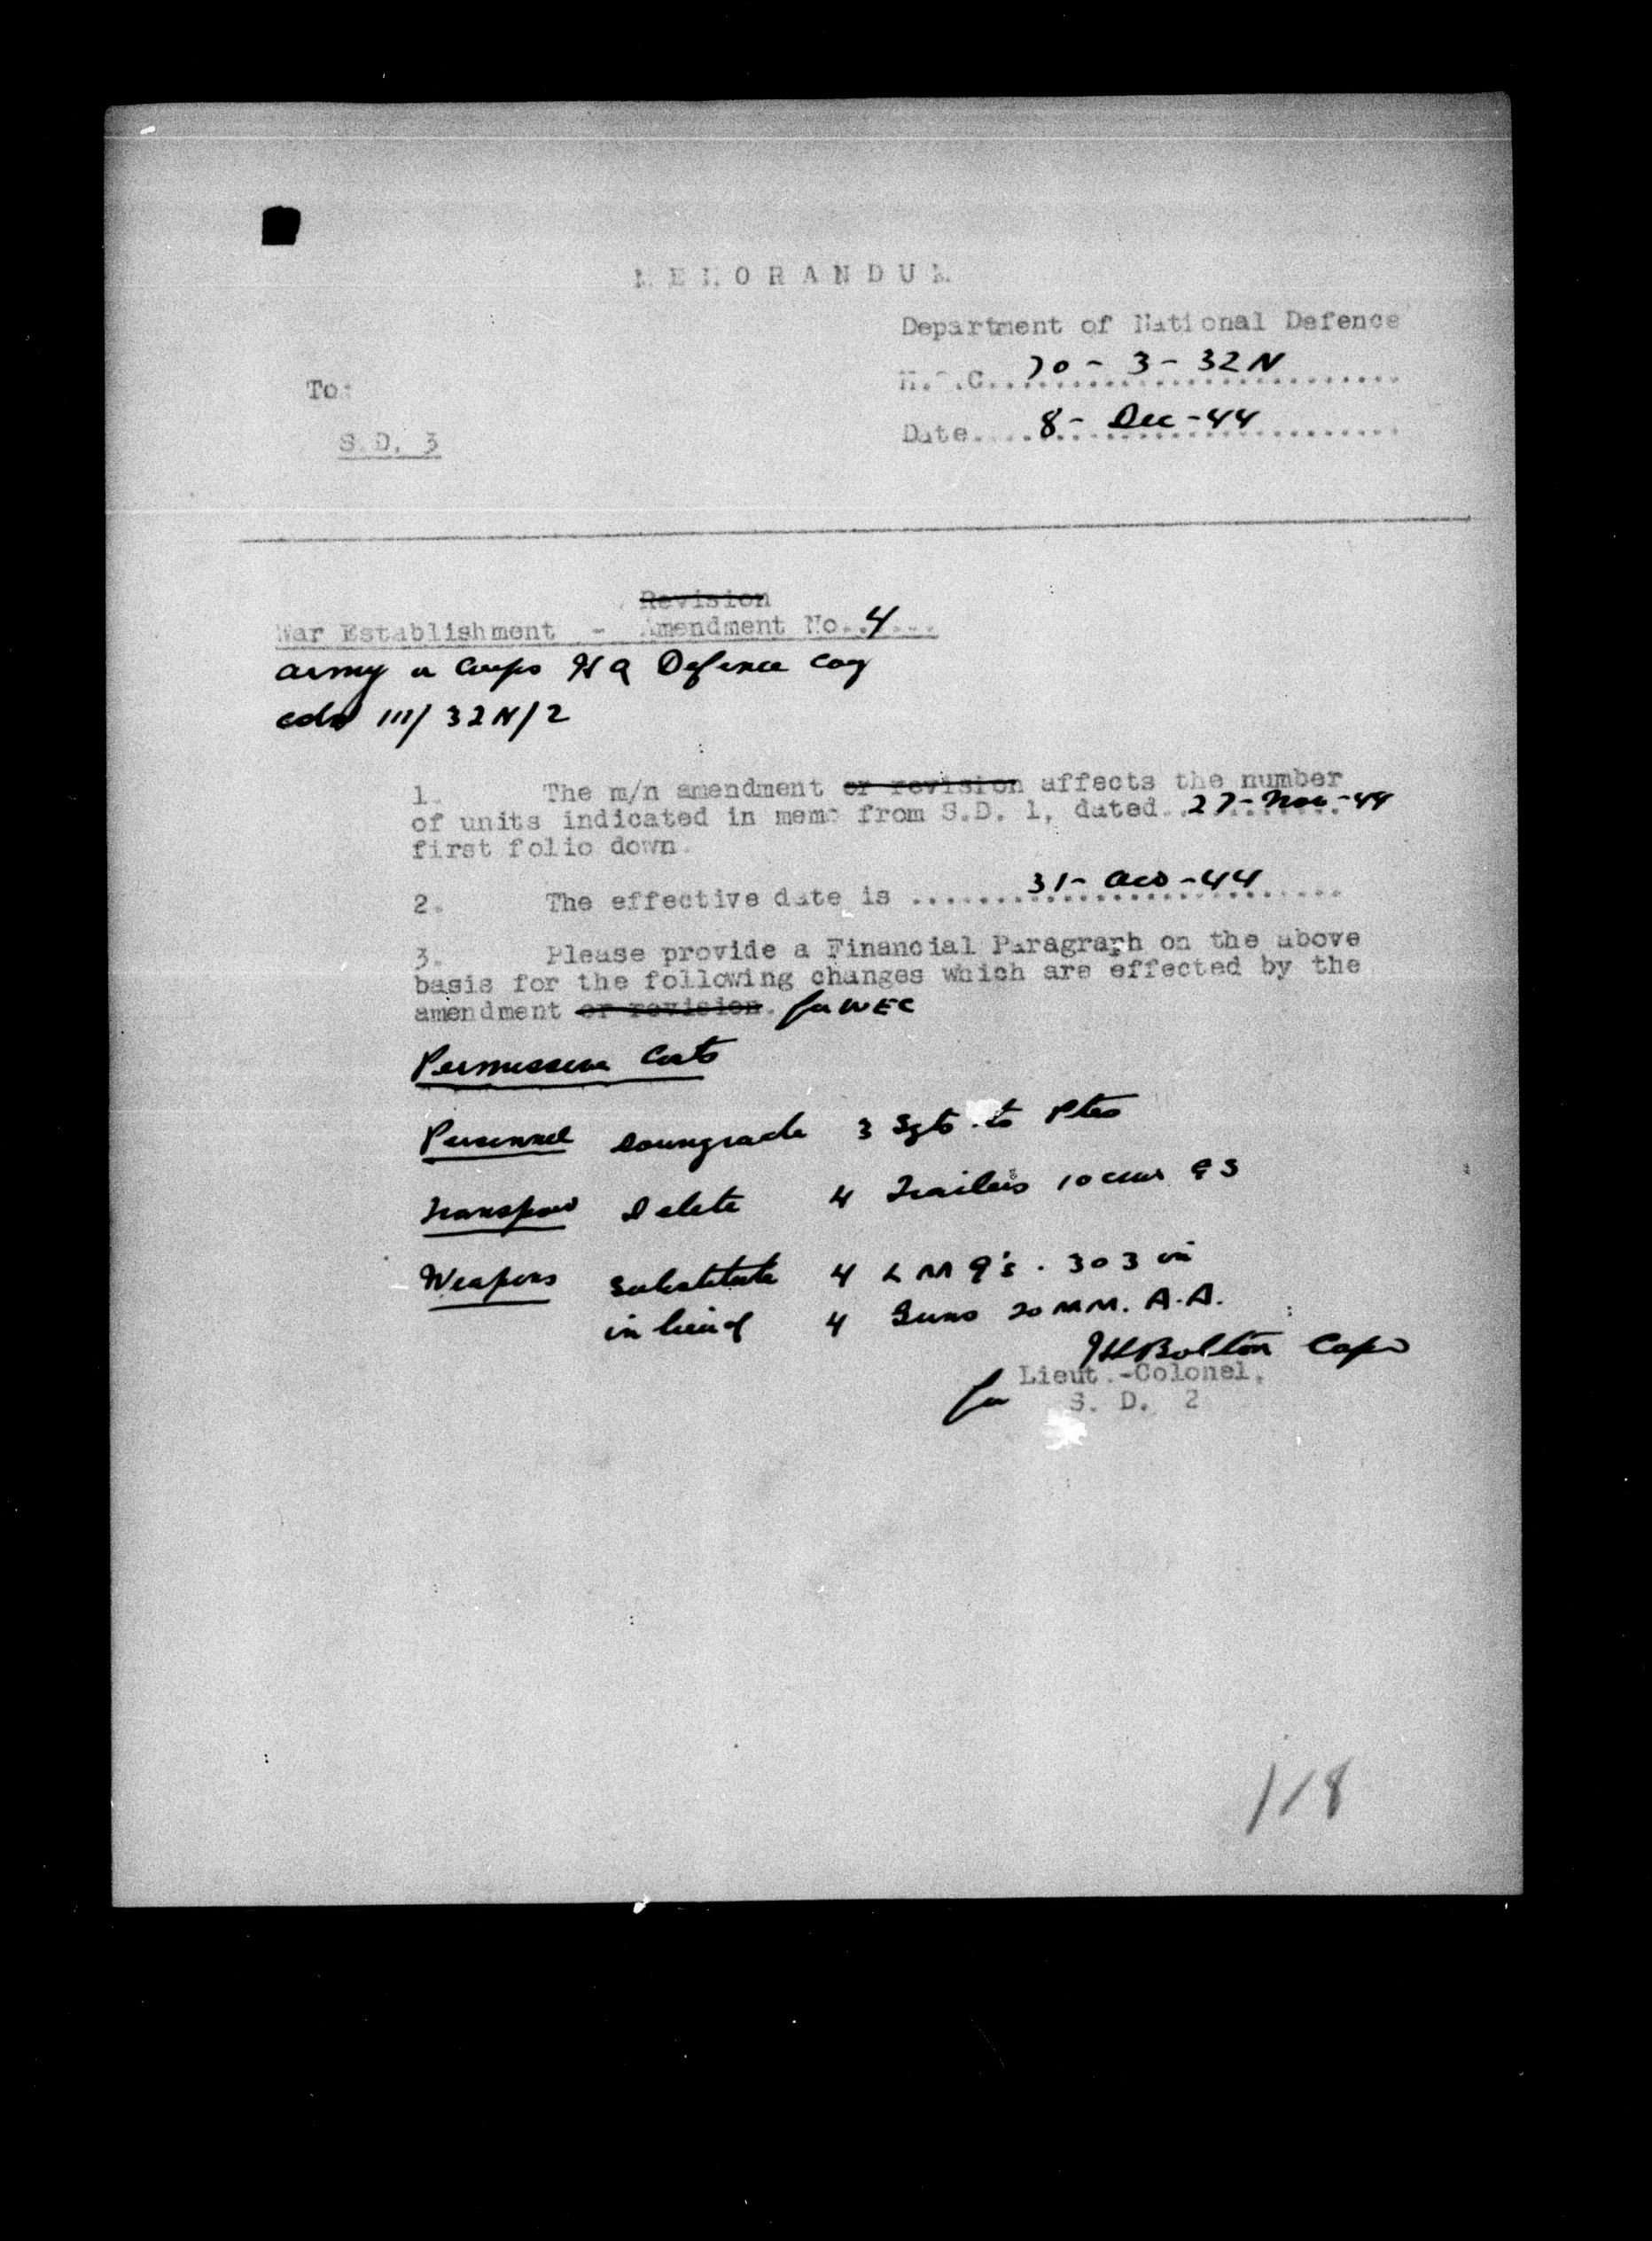 MEMORANDUM
Department of National Defence
H.Q.C. 70 - 3 - 32N
To:
Date 8 - Dec - 44
S.D. 3
Revision
War Establishment - Amendment No. 4
Army or Corps HQ Defence Coy
Cdn III/32N/2
1. The m/n amendment or revision affects the number
of units indicated in memo from S.D. 1, dated 27-Nov-44
first folio down.
2. The effective date is 31- Oct -44
3. Please provide a Financial Paragraph on the above
basis for the following changes which are effected by the
amendment or revision. for WEC
Permissive Costs
Personnel Downgrade 3 Sgts to Ptes
Transport Delete 4 Trailers 10 cwt GS
Weapons Substitute 4 LMG's .303 in
in lieu of 4 Guns 20 MM. A.A.
Bolton Capt
Lieut.-Colonel,
for S. D. 2
118